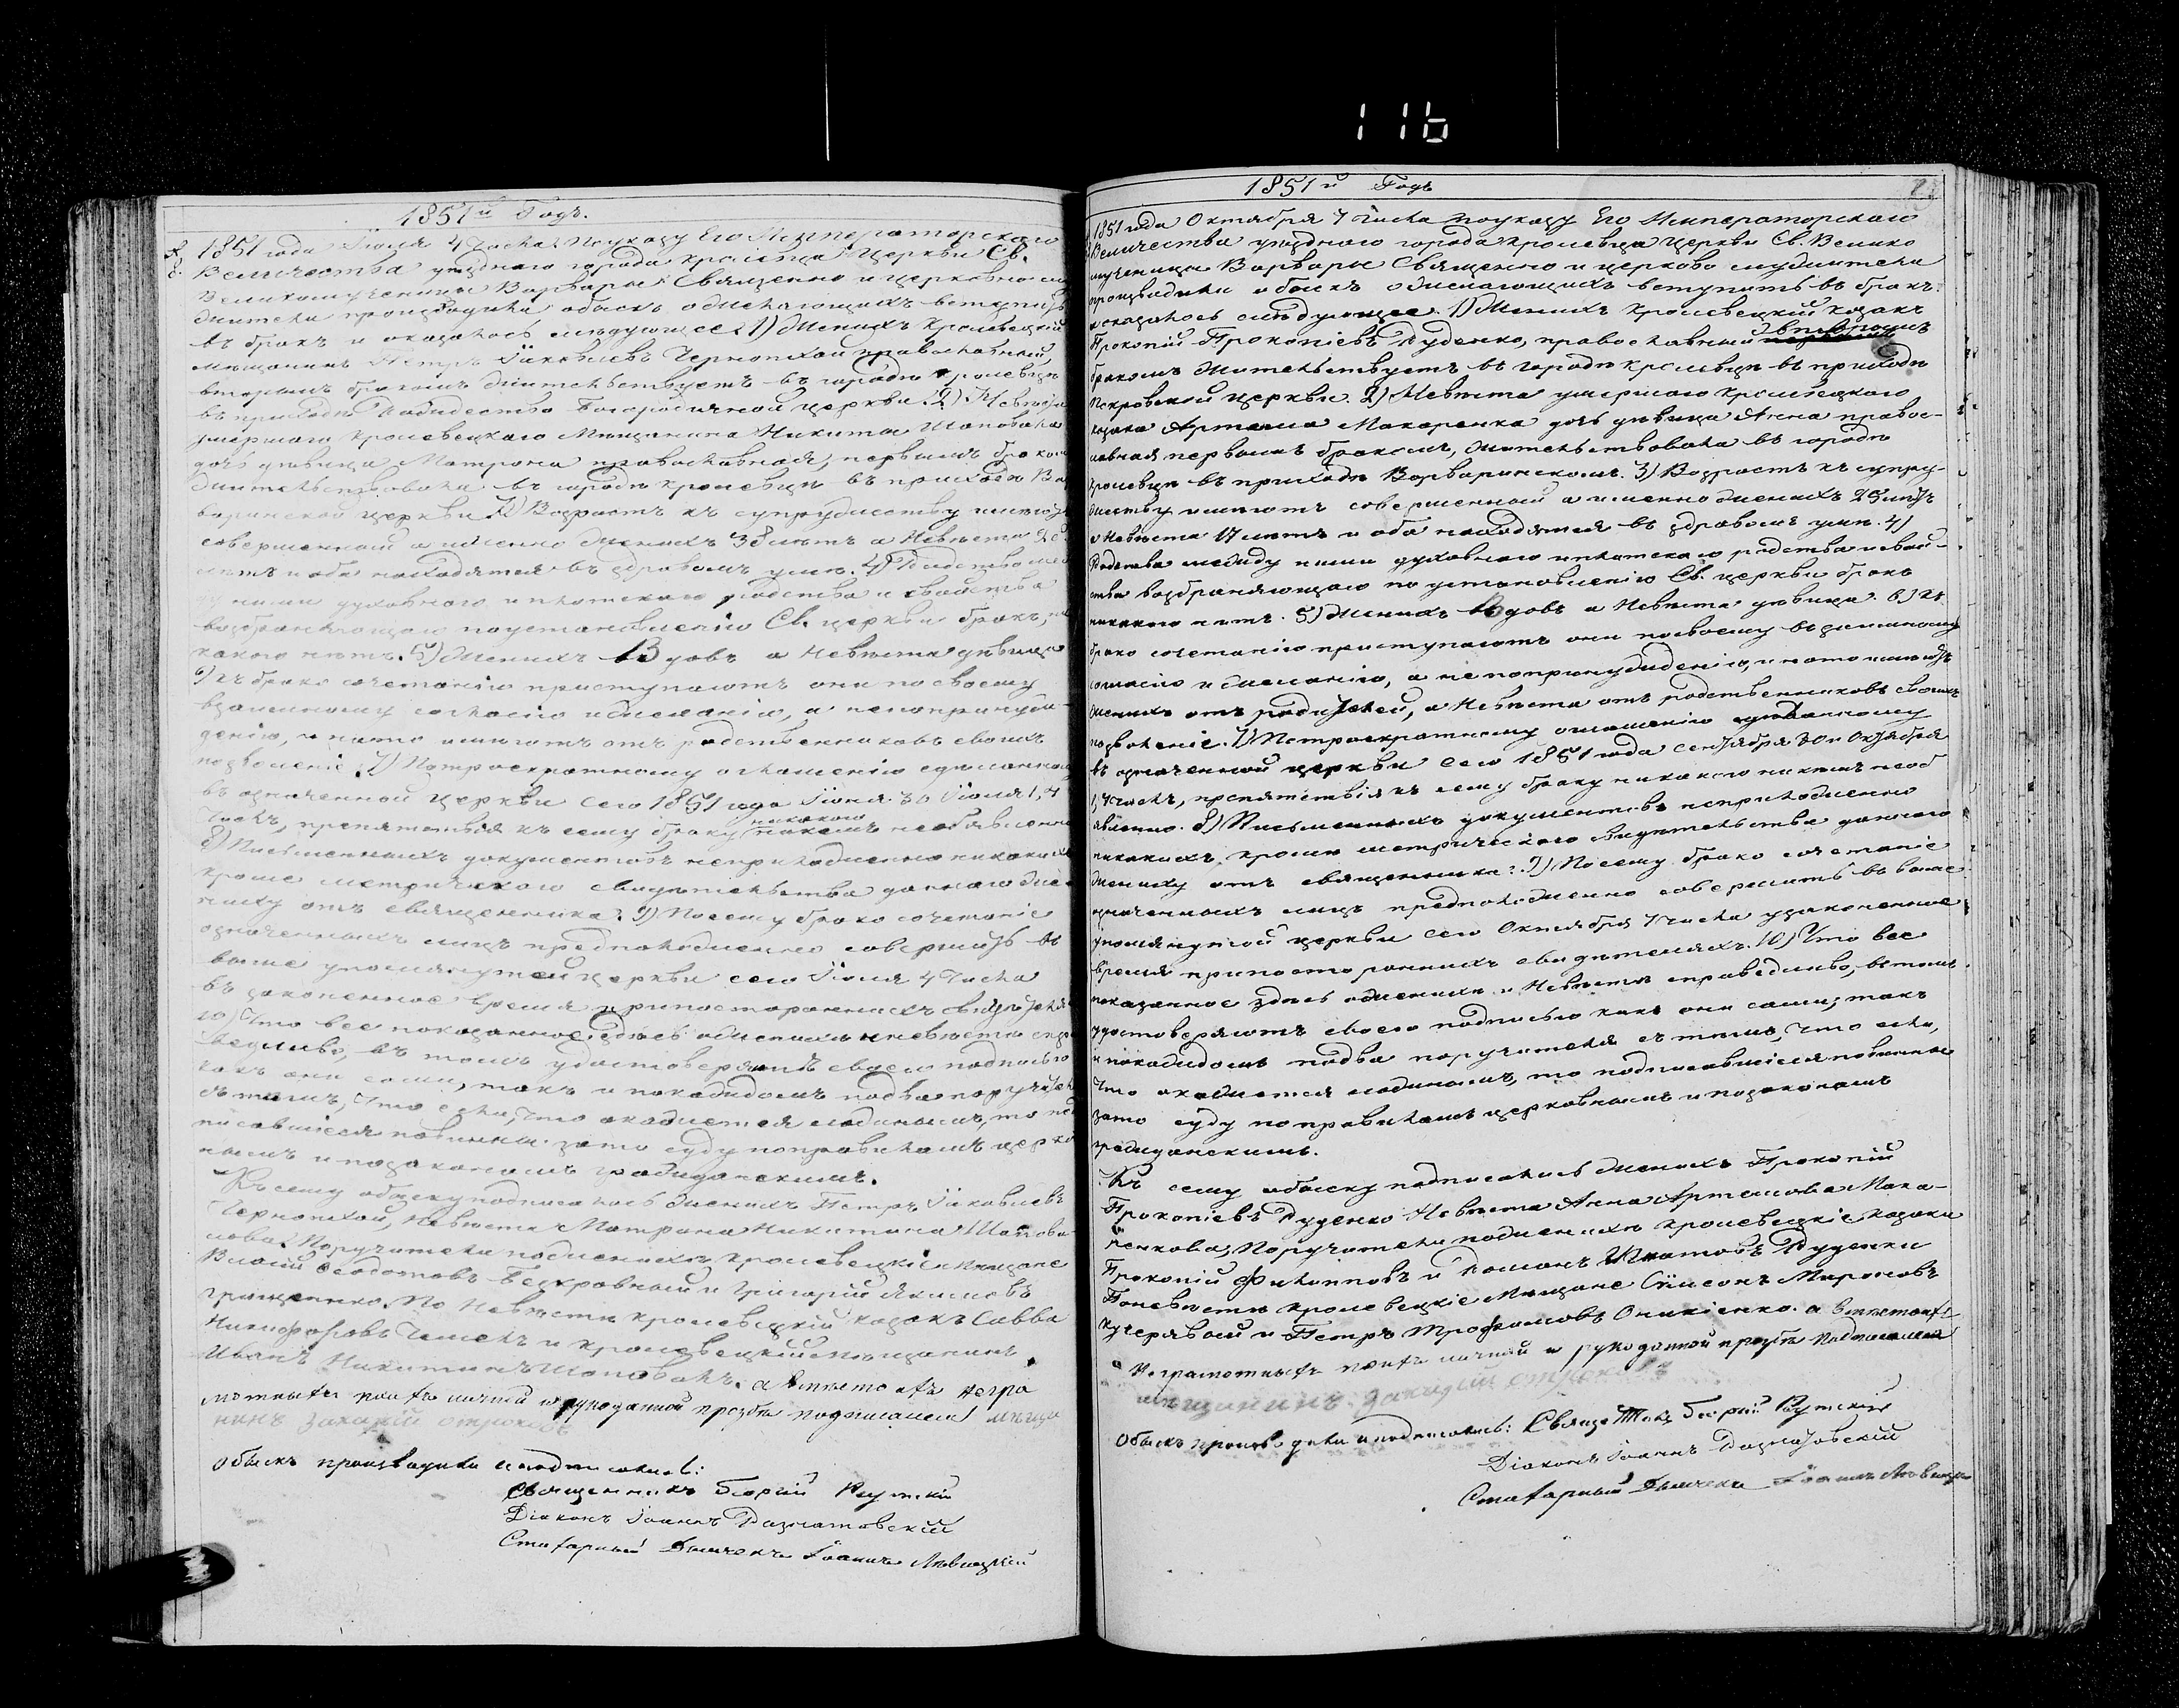 116
1851й Годъ.
1851 года Іюля 4 числа по указу Его Императорскаго
Величества уѣзднаго города Кролевца Церкви Св.
Великомученицы Варвары Священно и церковнослу
жители производили обыскъ о желающихъ вступить
въ бракъ и оказалось слѣдующее 1) Женихъ Кролевецкій
мѣщанинъ Петръ Іаковлевъ православный,
вторымъ бракомъ жительствуетъ въ городѣ Кролевцѣ
въ приходѣ Рождество Богородичной церкви. 2) Невѣста
умершаго Кролевецкаго Мѣщанина Никиты Шаповала
дочь дѣвица Матрона православная, первымъ бракомъ
жительствовала въ городѣ Кролевцѣ въ приходѣ Вар
варинской церкви 3) Возрастъ къ супружеству имеютъ
совершенный а именно Женихъ 38 лѣтъ а Невѣста
лѣтъ и оба находятся въ здравомъ умѣ. 4) Родства меж
у ними духовнаго и плотскаго родства и свойства
возбраняющаго по установленію Св. церкви бракъ, ни
какого нѣтъ. 5) Женихъ Вдовъ а Невѣста дѣвица
6) къ брако сочетанію приступаютъ они по своему
взаимному согласію и желанію, а не по принуж
денію, и на то имѣютъ отъ родственниковъ своихъ
позволеніе. 7) По троекратному оглашенію сдѣланному
въ означенной церкви сего 1851 года Іюня 30 Іюля 1, 4
числъ, препятствія къ сему браку никакого никемъ необъявленно
8) Письменныхъ документовъ неприложенно никакихъ
кроме метрическаго свидѣтельства даннаго Же
ниху отъ священника. 9) По сему брако сочетаніе
означенныхъ лицъ предположенно совершить въ
выше упомянутой церкви сего Іюля 4 числа
въ законенное время при постороннихъ свидѣтеля
10) Что все показанное здѣсь о женихѣ и невѣстѣ спра
ведливо, въ томъ удостоверяютъ своею подписью
какъ они сами, такъ и по каждомъ по два поручителя
съ тѣмъ, что если, что окажется ложнымъ, то под
писавшіеся повинны за то суду по правиламъ церков
нымъ и по законамъ гражданскимъ.
Къ сему обыску подписались Женихъ Петръ Іаковлевъ
Невѣста Матрона Никитина Шапова
лова. Поручители по женихѣ Кролевецкіе Мѣщане
Власій Ѳеодотовъ Безкровный и Григорій Якимовъ
Грищенко. По Невѣстѣ Кролевецкій козакъ Савва
Никифоровъ и Кролевецкій мѣщанинъ
Иванъ Никитинъ Шаповалъ. а вмѣсто ихъ негра
мотныхъ поихъ личной и рукоданной прозбѣ подписался мѣща
нинъ Захарій
Обыскъ производили и подписались:
Священникъ Георгій Рутскій
Діаконъ Іоаннъ
Стихарный Дьячекъ Іоаннъ Лѣвицкій
1851й Годъ
1851 года Октября 7 числа по указу Его Императорскаго
Величества уѣзднаго города Кролевца Церкви Св. Велико
мученицы Варвары Священно и церково служители
производили обыскъ о желающихъ вступить въ бракъ
и оказалось слѣдующее. 1) Женихъ Кролевецкій козакъ
Прокопій Прокопіевъ Руденко, православный вторымъ
бракомъ жительствуетъ въ городѣ Кролевцѣ въ приходѣ
Покровской церкви. 2) Невѣста умершаго Кролевецкаго
козака Артема Макаренка дочь дѣвица Анна правос-
лавная первымъ бракомъ, жительствовала въ городѣ
Кролевцѣ въ приходѣ Варваринскомъ. 3) Возрастъ къ супру-
жеству имѣютъ совершенный а именно женихъ 25 лѣтъ
а Невѣста 17 лѣтъ и оба находятся въ здравомъ умѣ. 4)
Родства между ними духовнаго и плотскаго родства и свой-
ства возбраняющаго по установленію Св. церкви бракъ
никакого нѣтъ. 5) Женихъ Вдовъ а Невѣста дѣвица. 6) къ
брако сочетанію приступаютъ они по своему взаимному
согласію и желанію, а не по принужденію, и на то имеютъ
Женихъ отъ родителей, а Невѣста отъ родственниковъ своихъ
позволеніе. 7) По троекратному оглашенію сделанному
въ означенной церкви сего 1851 года Сентября 30 и Октября
1, 7 числъ, препятствія къ сему браку никакого никемъ необ
явленно. 8) Письменныхъ документовъ неприложенно
никакихъ, кроме метрическаго свидѣтельства даннаго
Жениху отъ священника. 9) По сему брако сочетаніе
означенныхъ лицъ предположенно совершить въ выше
упомянутой церкви сего Октября 7 числа узаконенное
время при постороннихъ свидѣтеляхъ. 10) Что все
показанное здѣсь о женихѣ и Невѣстѣ справедливо, въ томъ
удостоверяютъ своею подписью какъ они сами, такъ
и по каждомъ по два поручителя съ тѣмъ, что если,
что окажется ложнымъ, то подписавшіеся повинны
за то суду по правиламъ церковнымъ и по законамъ
гражданскимъ.
Къ сему обыску подписались Женихъ Прокопій
Прокопіевъ Руденко Невѣста Анна Артемова Мака-
ренкова, Поручители по женихѣ Кролевецкіе козаки
Прокопій Филипповъ и Романъ Игнатовъ Руденки
По невѣстѣ Кролевецкіе Мѣщане Сѵмеонъ Мироновъ
Кучерявый и Петръ Трофимовъ Оникіенко. а вмѣсто ихъ
Неграмотныхъ поихъ личной и рукоданной прозбѣ подписался
мѣщанинъ Захарій
Обыскъ производили и подписались: Священникъ Георгій Рутскій
Діаконъ Іоаннъ
Стихарный Дьячекъ Іоаннъ Лѣвицкій